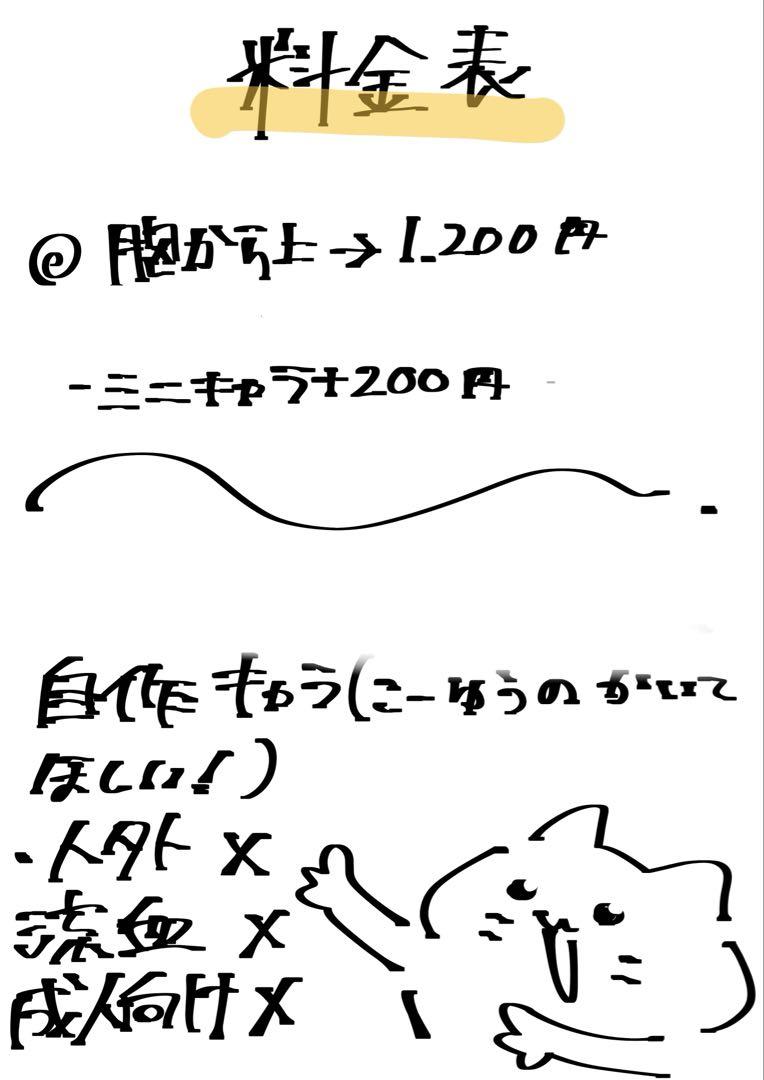 料金表
◎ 胸から上→1.200円
-ミニキャラ+200円
自作キャラ(こーゆうのかいて
ほしい!)
・人外 X
流血 X
成人向け X